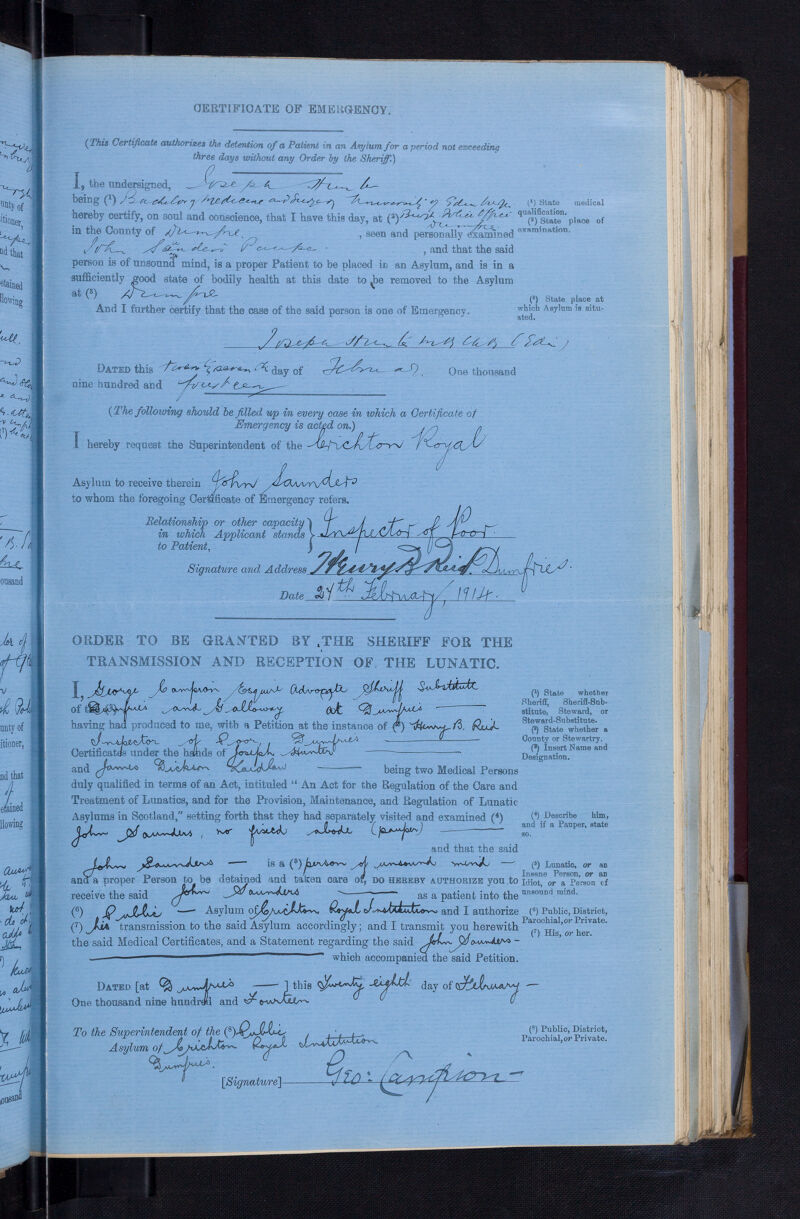 CERTIFICATE OF EMERGENCY.
(This Certificate authorizes the detention of a Patient in an Asylum for a period not exceeding
three days without any Order by the Sheriff.)
I, the undersigned, Joseph Hunter
being (1) Bachelor of Medicine and Surgery University of Edinburgh
hereby certify, on soul and conscience, that I have this day, at (2) Burgh Police Office Dumfries
in the County of Dumfries , seen and personally examined
John Sanders Pauper , and that the said
person is of unsound mind, is a proper Patient to be placed in an Asylum, and is in a
sufficiently good state of bodily health at this date to be removed to the Asylum
at (3) Dumfries
And I further certify that the case of the said person is one of Emergency.
(1) State medical
qualification.
(2) State place of
examination.
(3) State place at
which Asylum is situ-
ated.
Joseph Hunter M B Ch B (Edin)
DATED this twenty seventh day of February One thousand
nine hundred and fourteen
(The following should be filled up in every case in which a Certificate of
Emergency is acted on.)
I hereby request the Superintendent of the Crichton Royal
Asylum to receive therein John Saunders
to whom the foregoing Certificate of Emergency refers.
Relationship or other capacity
in which Applicant stands
to Patient,
Inspector of Poor.
Signature and Address Henry B Reid. Dumfries.
Date 27th February, 1914.
ORDER TO BE GRANTED BY THE SHERIFF FOR THE
TRANSMISSION AND RECEPTION OF THE LUNATIC.
I, George Campion Esquire Advocate Sheriff Substitute
of Dumfries and Galloway at Dumfries
having had produced to me, with a Petition at the instance of (3) Henry B. Reid
Inspector of Poor, Dumfries
Certificates under the hands of Joseph Hunter
and James Dickson Laidlaw being two Medical Persons
duly qualified in terms of an Act, intituled "An Act for the Regulation of the Care and
Treatment of Lunatics, and for the Provision, Maintenance, and Regulation of Lunatic
Asylums in Scotland," setting forth that they had separately visited and examined (4)
John Saunders, no fixed abode (pauper)
and that the said
John Saunders is a (5) person of unsound mind
and a proper Person to be detained and taken care of, DO HEREBY AUTHORIZE you to
receive the said John Saunders as a patient into the
(6) Public Asylum of Crichton Royal Institution and I authorize
(7) his transmission to the said Asylum accordingly; and I transmit you herewith
the said Medical Certificates, and a Statement regarding the said John Saunders
which accompanied the said Petition.
(1) State whether
Sheriff, Sheriff-Sub-
stitute, Steward, or
Steward-Substitute.
(2) State whether a
County or Stewartry.
(3) Insert Name and
Designation.
(4) Describe him,
and if a Pauper, state
so.
(5) Lunatic, or an
Insane Person, or an
Idiot, or a Person of
unsound mind.
(6) Public, District,
Parochial, or Private.
(7) His, or her.
DATED [at Dumfries ] this Twenty eighth day of February
One thousand nine hundred and Fourteen
To the Superintendent of the (8) Public
Asylum of Crichton Royal Institution
Dumfries.
(8) Public, District,
Parochial, or Private.
[Signature] Geo: Campion